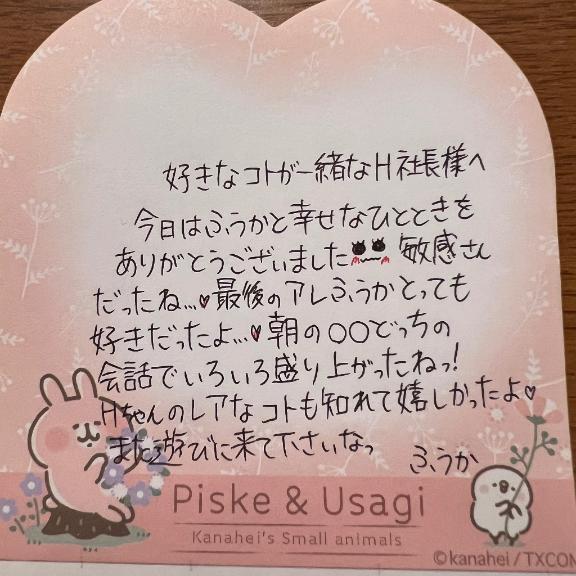 好きなコトが一緒なH社長様へ
今日はふうかと幸せなひとときを
ありがとうございました 敏感さん
だったね…♥最後のアレふうかとっても
好きだったよ…♥朝の〇〇どっちの
会話でいろいろ盛り上がったねっ!
Hちゃんのレアなコトも知れて嬉しかったよ♥
また遊びに来て下さいなっ
ふうか
Piske & Usagi
Kanahei's Small animals
©kanahei / TXCOM